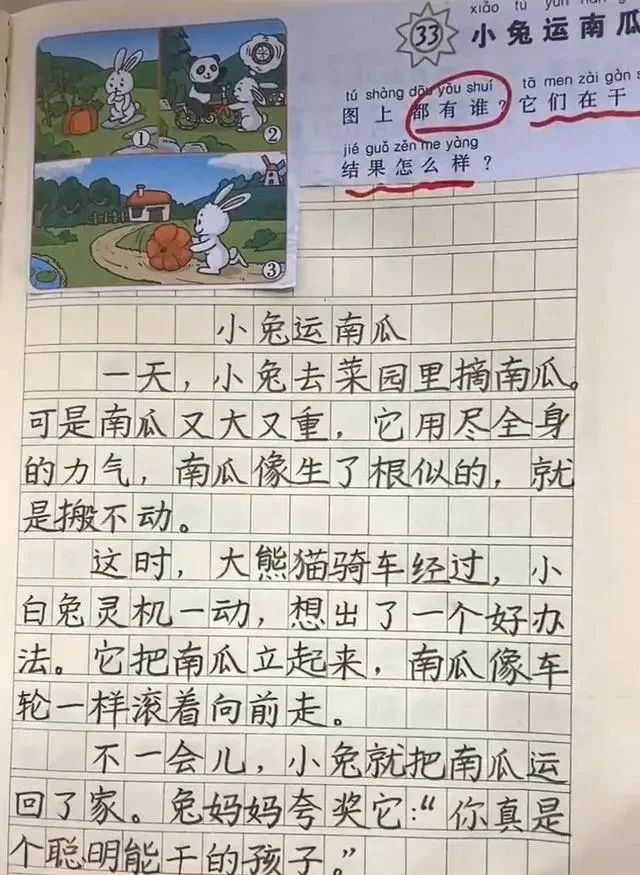 xiǎo tù yùn nán g
33 小兔运南瓜
tú shàng dōu yǒu shuí tā men zài gàn s
图上都有谁？它们在干
jié guǒ zěn me yàng
结果怎么样？
①
②
③
小兔运南瓜
一天，小兔去菜园里摘南瓜。
可是南瓜又大又重，它用尽全身
的力气，南瓜像生了根似的，就
是搬不动。
这时，大熊猫骑车经过，小
白兔灵机一动，想出了一个好办
法。它把南瓜立起来，南瓜像车
轮一样滚着向前走。
不一会儿，小兔就把南瓜运
回了家。兔妈妈夸奖它：“你真是
个聪明能干的孩子。”